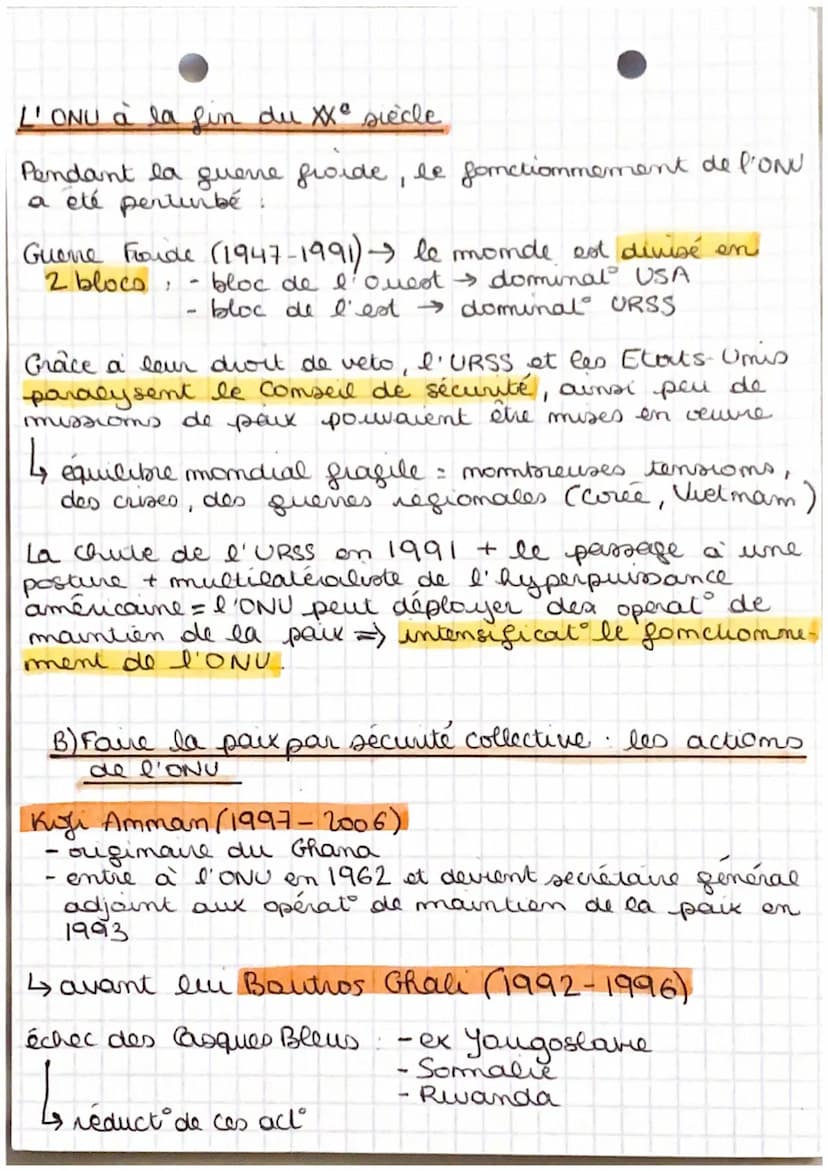 L'ONU à la fin du XXe siècle
Pendant la guerre froide, le fonctionnement de l'ONU
a été perturbé :
Guerre Froide (1947-1991) → le monde est divisé en
2 blocs : - bloc de l'Ouest → dominat° USA
- bloc de l'est → dominat° URSS
Grâce à leur droit de veto, l'URSS et les Etats-Unis
paralysent le Conseil de sécurité, ainsi peu de
missions de paix pouvaient être mises en oeuvre
↳ équilibre mondial fragile = nombreuses tensions,
des crises, des guerres régionales (Corée, Vietnam)
La chute de l'URSS en 1991 + le passage à une
posture + multilatéraliste de l'hyperpuissance
américaine = l'ONU peut déployer des operat° de
maintien de la paix => intensificat° le fonctionne-
ment de l'ONU.
B) Faire la paix par sécurité collective : les actions
de l'ONU
Kofi Annan (1997-2006)
- originaire du Ghana
- entre à l'ONU en 1962 et devient secrétaire général
adjoint aux opérat° de maintien de la paix en
1993
↳ avant lui Boutros Ghali (1992-1996)
échec des Casques Bleus : - ex Yougoslavie
- Somalie
- Rwanda
↳ réduct° de ces act°